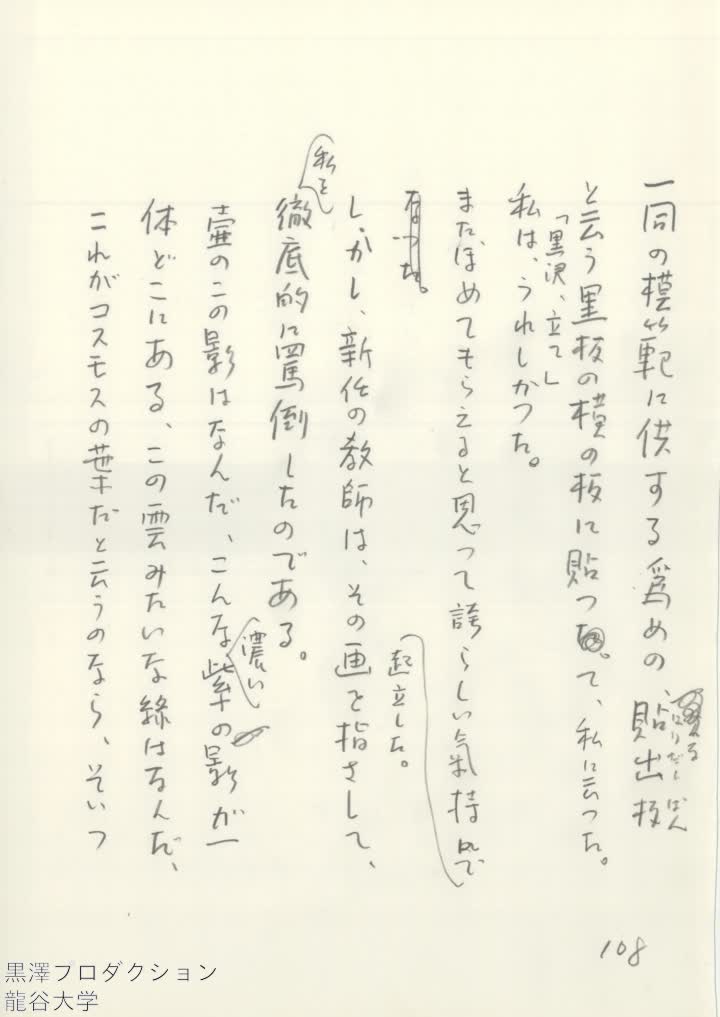 一同の模範に供する為めの、貼出板
はりだしばん
と云う黒板の横の板に貼つて、私に云つた。
「黒沢、立て」
私は、うれしかつた。
また、ほめてもらえると思って誇らしい気持で
起立した。
なつた。
しかし、新任の教師は、その画を指さして、
私を
徹底的に罵倒したのである。
壷のこの影はなんだ、こんな紫の影が一
濃い
体どこにある、この雲みたいな緑はなんだ、
これがコスモスの葉だと云うのなら、そいつ
108
黒澤プロダクション
龍谷大学